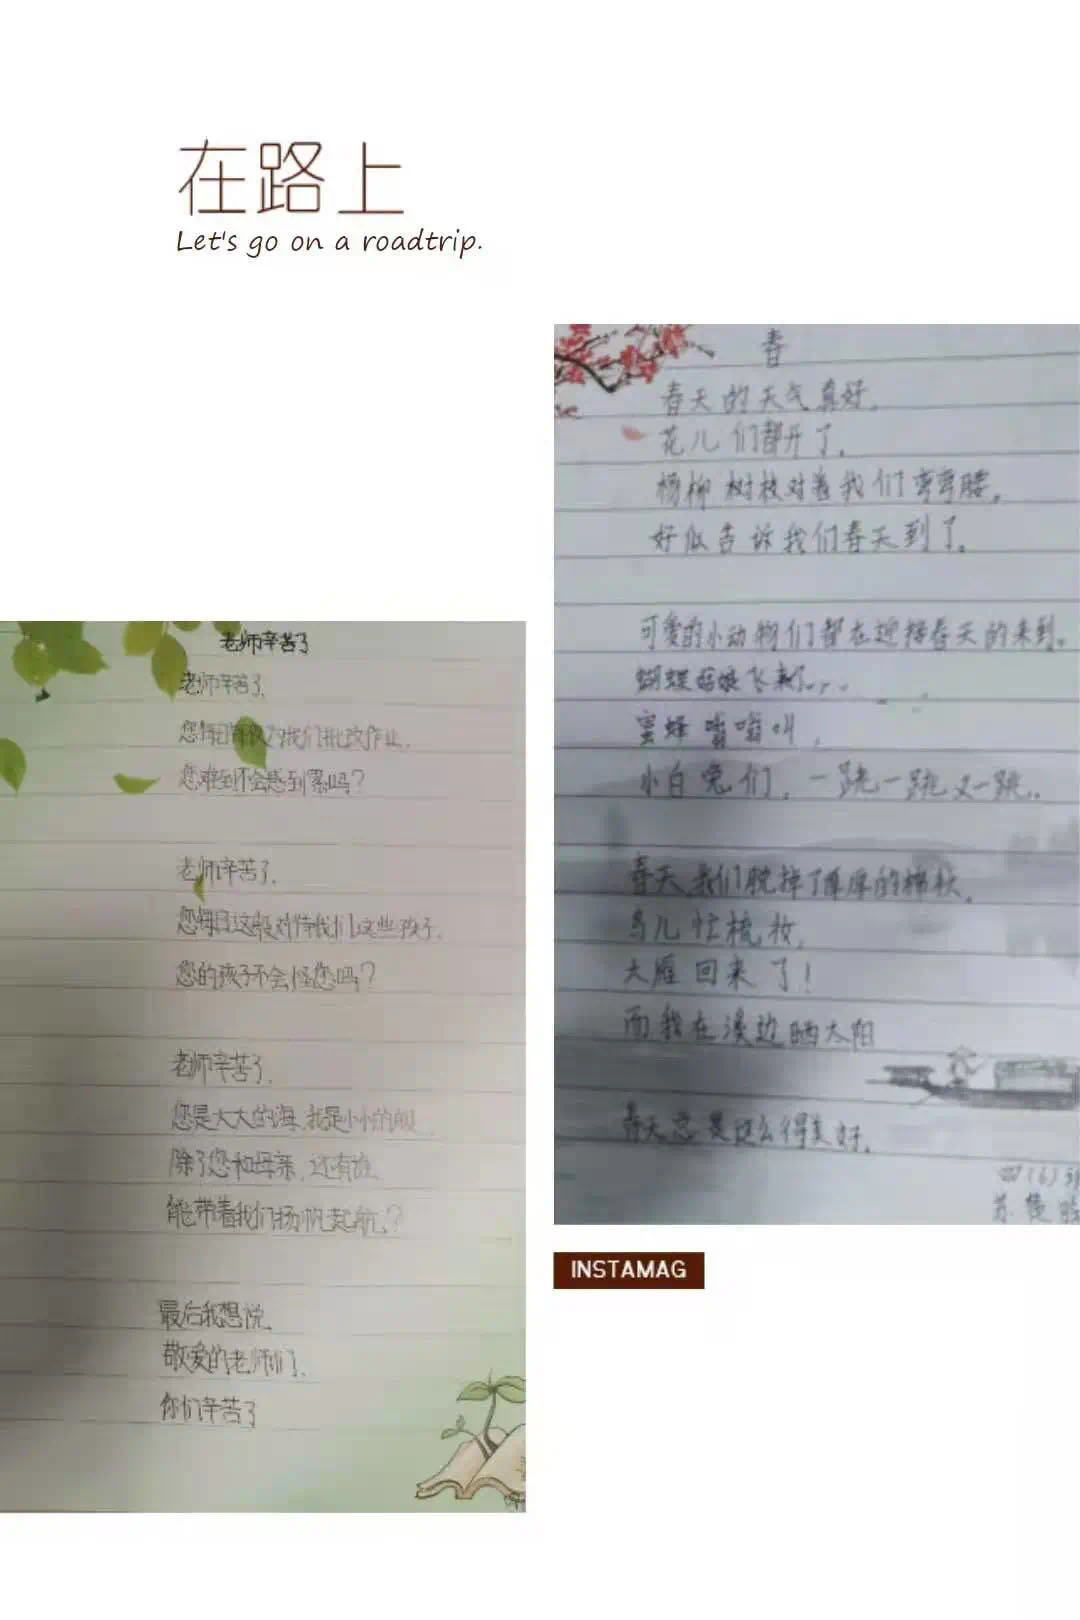 在路上
Let's go on a roadtrip.
老师辛苦了
老师辛苦了,
您每日每夜为我们批改作业,
您难到不会感到累吗?
老师辛苦了,
您每日这般对待我们这些孩子,
您的孩子不会怪您吗?
老师辛苦了,
您是大大的海,我是小小的船
除了您和母亲,还有谁
能带着我们扬帆起航?
最后我想说,
敬爱的老师们,
你们辛苦了
春
春天的天气真好,
花儿们都开了,
杨柳树枝对着我们弯弯腰,
好似告诉我们春天到了。
可爱的小动物们都在迎接春天的来到。
蝴蝶姑娘飞来了...
蜜蜂嗡嗡叫,
小白兔们,一跳一跳又一跳..
春天,我们脱掉了厚厚的棉袄,
鸟儿忙梳妆,
大雁回来了!
而我在溪边晒太阳
春天总是这么得美好。
四(6)班
苏
INSTAMAG